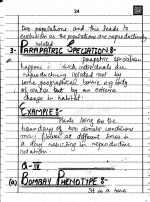 24
two populations and this leads to
evolution as the populations are reproductively
related
3- PARAPATRIC SPECIATION :-
Parapatric speciation
happens in individuals are
reproductively isolated not by
some geographical barrier e.g. body
of water but by an extreme
change in habitat.
EXAMPLE :-
Plants living on the
boundary of two climate conditions
may flower at different times in
a day resulting in reproductive
isolation.
Q-IV
(a) BOMBAY PHENOTYPE :-
It is a rare